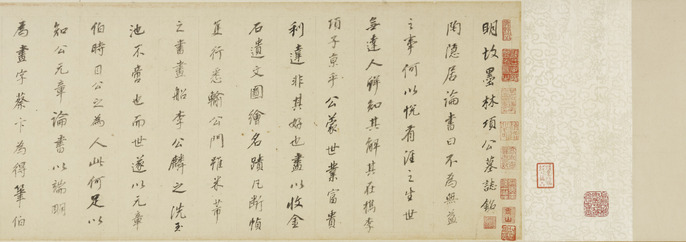 明故墨林項公墓誌銘
陶隱居論書曰不為無益
之事何以悅有涯之生世
無達人解知其解其在檇李
項子京乎公蒙世業富貴
利達非其好也盡以收金
石遺文圖繪名蹟凡斷幀
隻行悉輸公門雖米芾
之書畫船李公麟之洗玉
池不啻也而世遂以元章
伯時目公之為人此何足以
知公元章論書以
為畫字蔡卞為得筆伯